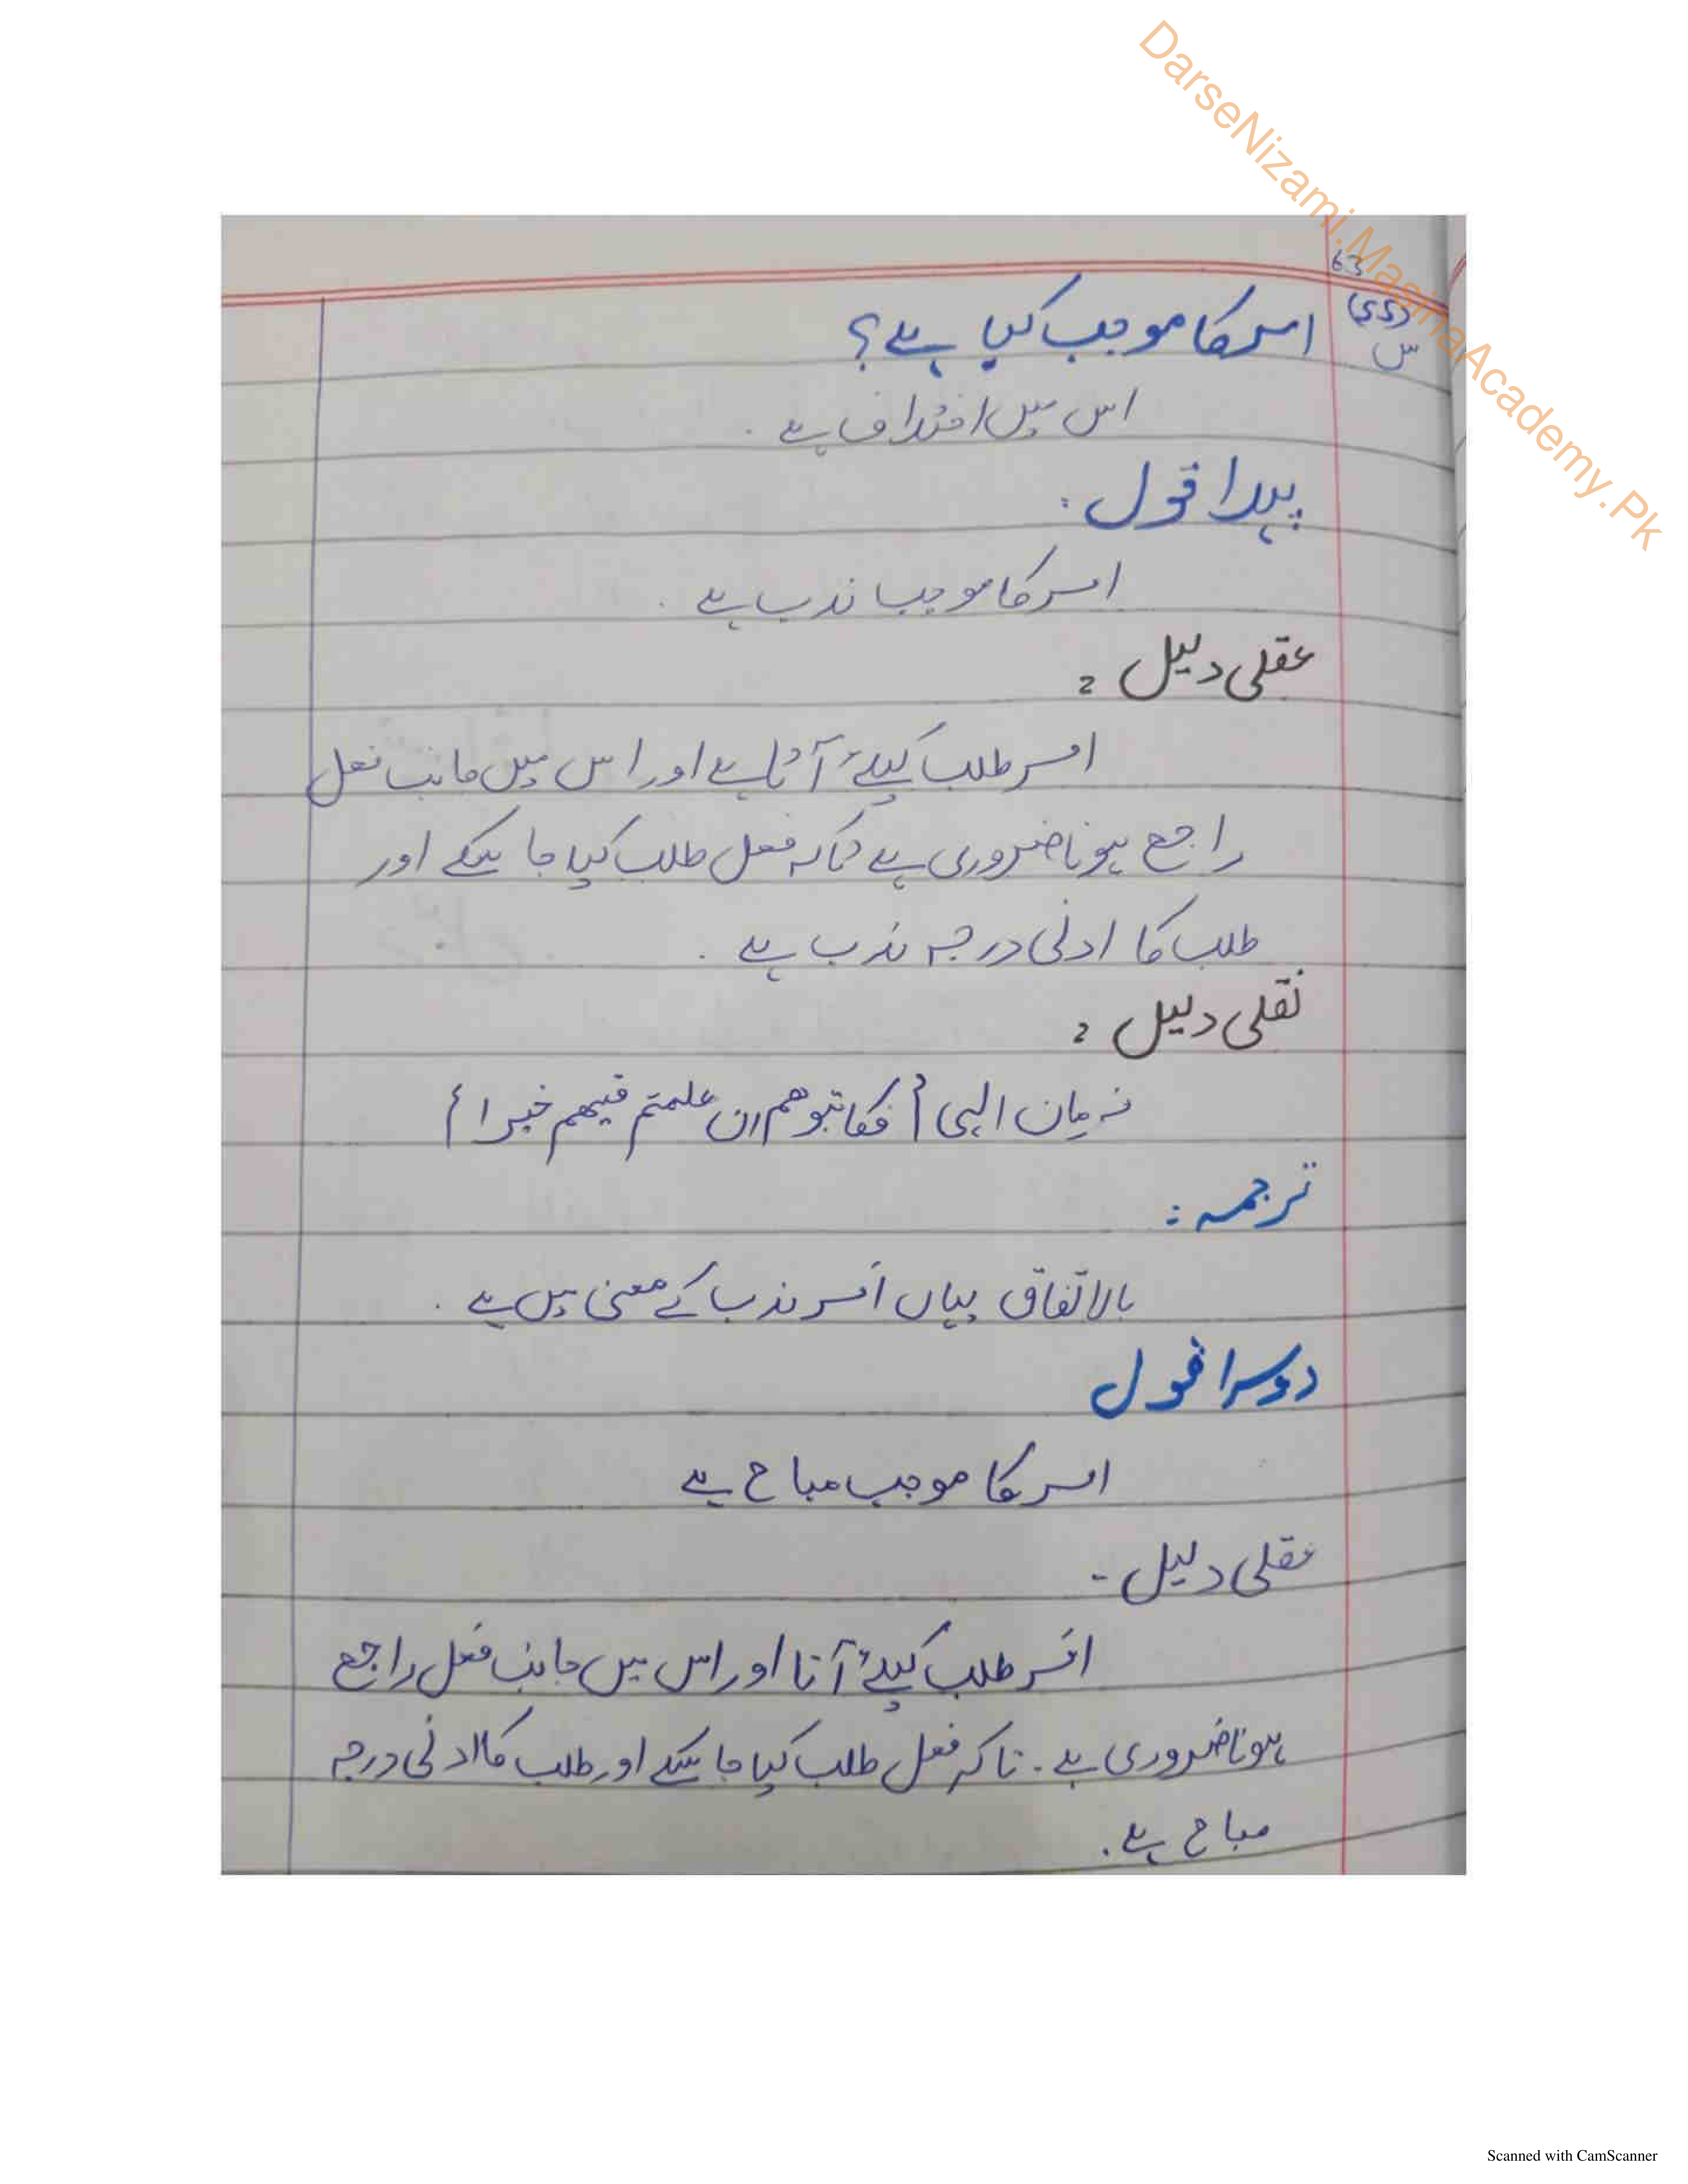 DarseNizami.MasihaAcademy.Pk
63
(55)
س امر کا موجب کیا ہے؟
اس میں اختلاف ہے.
پہلا قول:
امر کا موجب ندب ہے.
عقلی دلیل:
امر طلب کیلئے آتا ہے اور اس میں جانب فعل
راجع ہونا ضروری ہے تاکہ فعل طلب کیا جا سکے اور
طلب کا ادنی درجہ ندب ہے.
نقلی دلیل:
فرمان الہی {فکاتبوھم ان علمتم فیھم خیرا}
ترجمہ:
بالاتفاق یہاں امر ندب کے معنی میں ہے.
دوسرا قول
امر کا موجب مباح ہے
عقلی دلیل-
امر طلب کیلئے آنا اور اس میں جانب فعل راجع
ہونا ضروری ہے. تاکہ فعل طلب کیا جا سکے اور طلب کا ادنی درجہ
مباح ہے.
Scanned with CamScanner